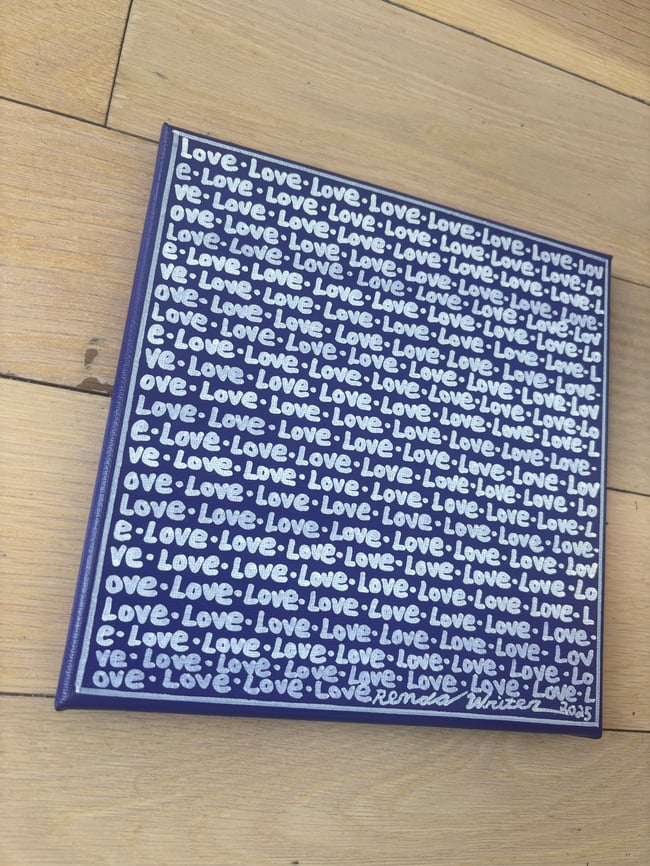 Love·Love·Love·Love·Love·Love·Love·Lov
e·Love·Love·Love·Love·Love·Love·Love·Lo
ve·Love·Love·Love·Love·Love·Love·Love·L
ove·Love·Love·Love·Love·Love·Love·Love·
Love·Love·Love·Love·Love·Love·Love·Lov
e·Love·Love·Love·Love·Love·Love·Love·Lo
ve·Love·Love·Love·Love·Love·Love·Love·L
ove·Love·Love·Love·Love·Love·Love·Love·
Love·Love·Love·Love·Love·Love·Love·Lov
e·Love·Love·Love·Love·Love·Love·Love·Lo
ve·Love·Love·Love·Love·Love·Love·Love·L
ove·Love·Love·Love·Love·Love·Love·Love·
Love·Love·Love·Love·Love·Love·Love·Lov
e·Love·Love·Love·Love·Love·Love·Love·Lo
ve·Love·Love·Love·Love·Love·Love·Love·L
ove·Love·Love·Love·Love·Love·Love·Love·
Love·Love·Love·Love·Love·Love·Love·Lov
e·Love·Love·Love·Love·Love·Love·Love·Lo
ve·Love·Love·Love·Love·Love·Love·Love·L
ove·Love·Love·Love·Love·Love·Love·Love·
Love·Love·Love·Love·Love·Love·Love·Lov
e·Love·Love·Love·Love·Love·Love·Love·Lo
ve·Love·Love·Love·Love·Love·Love·Love·L
ove·Love·Love·Love Renda Writer 2025